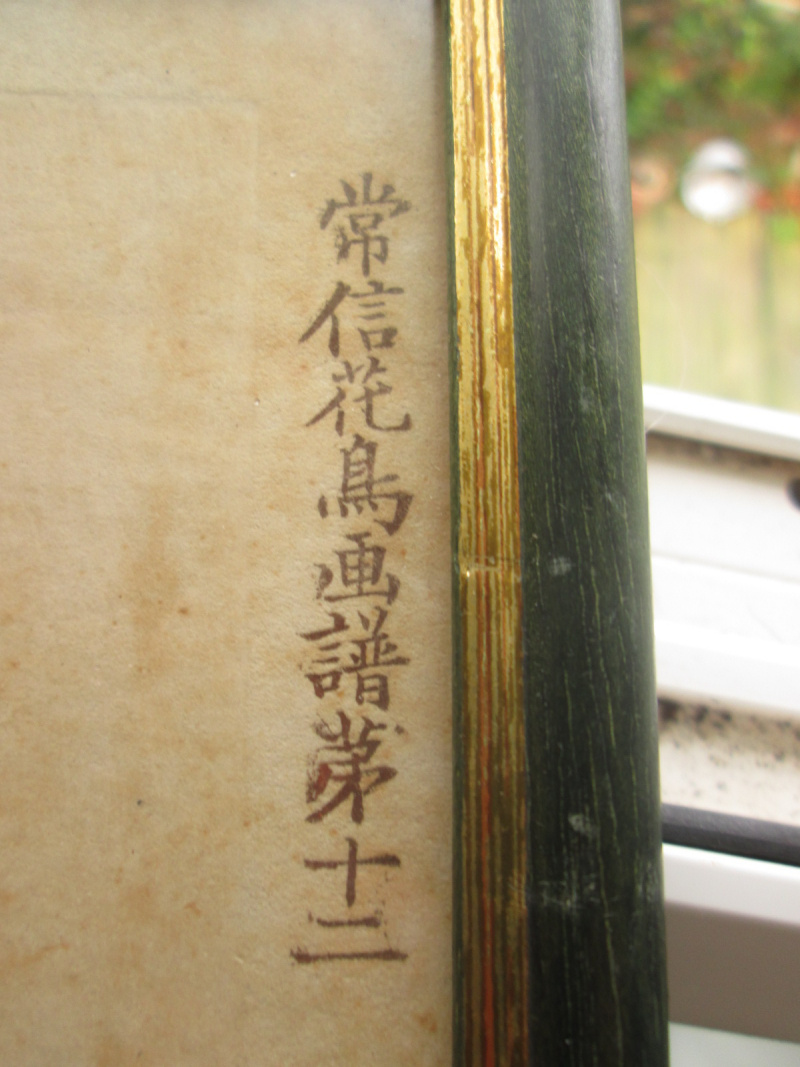 常信花鳥画譜苐十二